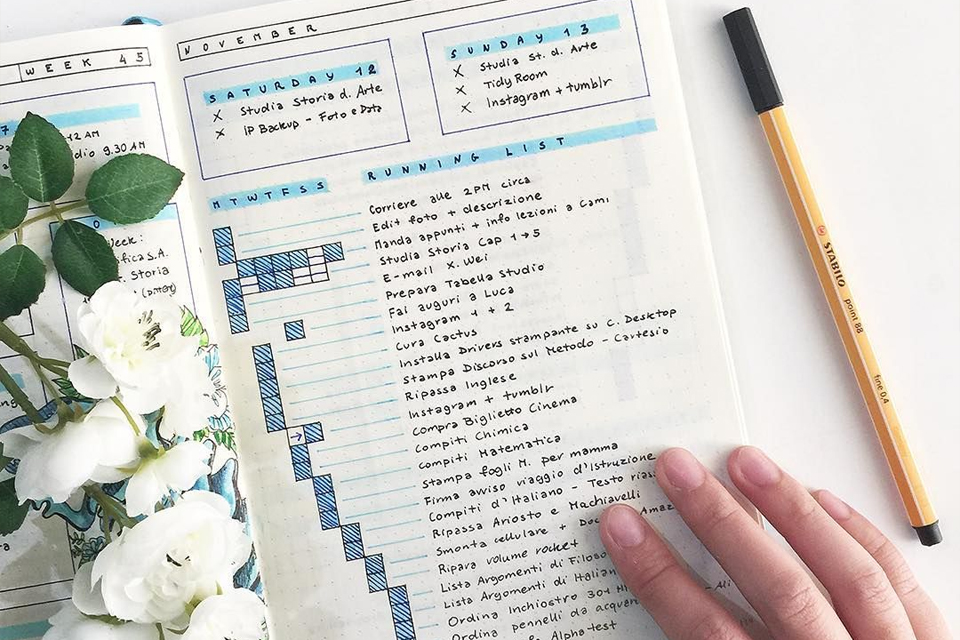 WEEK 45
12 AM
dio 9.30 AM
Week:
fica S.A.
Storia
NOVEMBER
SATURDAY 12
X Studia Storia d. Arte
X IP Backup - Foto e Data
SUNDAY 13
X Studia St. d. Arte
X Tidy Room
X Instagram + tumblr
MTWTFSS
RUNNING LIST
Corriere alle 2PM circa
Edit foto + descrizione
Manda appunti + info lezioni a Cami
Studia Storia Cap 1→5
E-mail X. Wei
Prepara Tabella Studio
Fai auguri a Luca
Instagram 1 + 2
Cura Cactus
Installa Drivers stampante su C. Desktop
Stampa Discorso sul Metodo - Cartesio
Ripassa Inglese
Instagram + tumblr
Compra Biglietto Cinema
Compiti Chimica
Compiti Matematica
Stampa fogli M. per mamma
Firma avviso viaggio d'Istruzione
Compiti d'Italiano - Testo
Ripassa Ariosto e Machiavelli
Smonta cellulare +
Ripara volume rocket
Lista Argomenti di
Lista Argomenti di
Ordina Inchiostro 301
Ordina pennelli da
Alphatest
STABILO point 88 fine 0,4